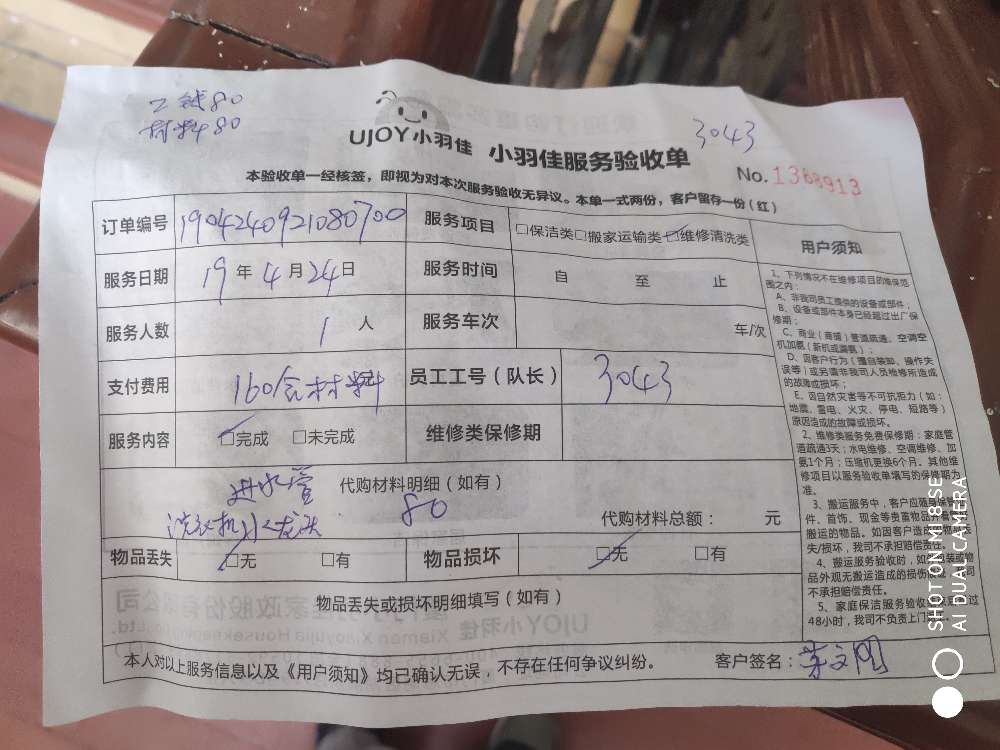 工钱80
材料80
UJOY小羽佳 小羽佳服务验收单
3043
No.1368913
本验收单一经核签，即视为对本次服务验收无异议。本单一式两份，客户留存一份（红）
订单编号 1904240921080700 服务项目 □保洁类□搬家运输类☑维修清洗类
服务日期 19年4月24日 服务时间 自 至 止
服务人数 1人 服务车次 车/次
支付费用 160含材料 员工工号（队长） 3043
服务内容 ☑完成 □未完成 维修类保修期
进水管 代购材料明细（如有）
洗衣机水龙头 80 代购材料总额： 元
物品丢失 ☑无 □有 物品损坏 ☑无 □有
物品丢失或损坏明细填写（如有）
本人对以上服务信息以及《用户须知》均已确认无误，不存在任何争议纠纷。 客户签名：
用户须知
1、下列情况不在维修项目的维保范
围之内：
A、非我司员工提供的设备或部件；
B、设备或部件本身已经超过出厂保
修期；
C、商业（商铺）管道疏通、空调空
机加氨（新机或漏氨）；
D、因客户行为（擅自装卸、操作失
误等）或另请非我司人员维修所造成
的故障或损坏；
E、因自然灾害等不可抗拒力（如：
地震、雷电、火灾、停电、短路等）
原因造成的故障或损坏。
2、维修类服务免费保修期：家庭管
道疏通3天；水电维修、空调维修、加
氨1个月；压缩机更换6个月。其他维
修项目以服务验收单填写的保修期为
准。
3、搬运服务中，客户应随身保管
件、首饰、现金等贵重物品并
搬运的物品。如因客户造成
失/损坏，我司不承担赔偿责任。
4、搬运服务验收时，如
品外观无搬运造成的损伤，我司
不承担赔偿责任。
5、家庭保洁服务验收 过
48小时，我司不负责上门
SHOT ON MI 8SE
AI DUAL CAMERA